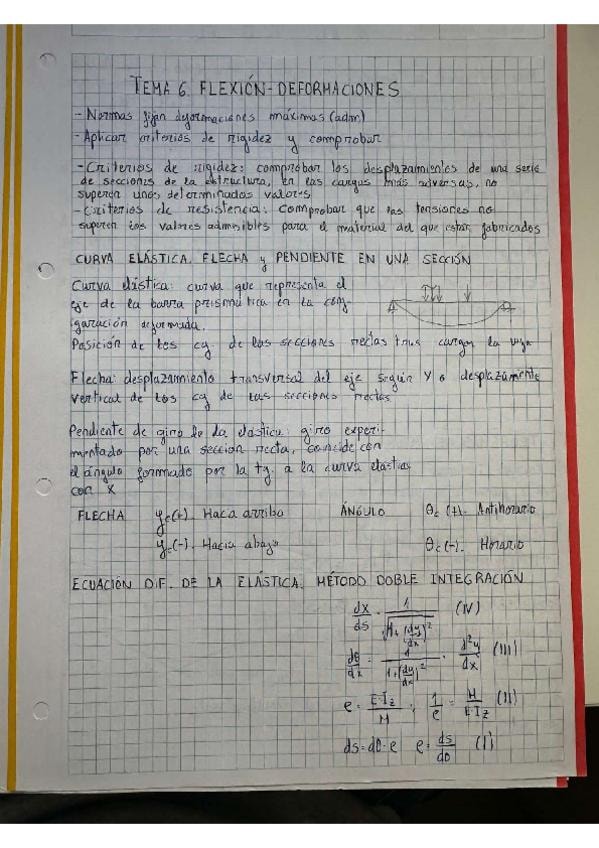 TEMA 6. FLEXIÓN-DEFORMACIONES
- Normas fijan deformaciones máximas (adm)
- Aplicar criterios de rigidez y comprobar
- Criterios de rigidez: comprobar los desplazamientos de una serie
de secciones de la estructura, en las cargas más adversas, no
superen unos determinados valores
- Criterios de resistencia: Comprobar que las tensiones no
superen los valores admisibles para el material del que están fabricados
CURVA ELÁSTICA, FLECHA y PENDIENTE EN UNA SECCIÓN
Curva elástica: curva que representa el
eje de la barra prismática en la con-
figuración deformada.
Posición de los cg. de las secciones rectas tras cargar la viga
Flecha: desplazamiento transversal del eje según Y o desplazamiento
vertical de los cg de las secciones rectas
Pendiente de giro de la elástica: giro experi-
mentado por una sección recta, coincide con
el ángulo formado por la tg. a la curva elástica
con X
FLECHA yc(+). Hacia arriba ÁNGULO θc (+). Antihorario
yc(-). Hacia abajo θc(-). Horario
ECUACIÓN DIF. DE LA ELÁSTICA. MÉTODO DOBLE INTEGRACIÓN
dx/ds = 1/√(1+(dy/dx)²) (IV)
dθ/dx = 1/(1+(dy/dx)²) · d²y/dx (III)
e = E·Iz/M ; 1/e = M/E·Iz (II)
ds=dθ·e e = ds/dθ (I)